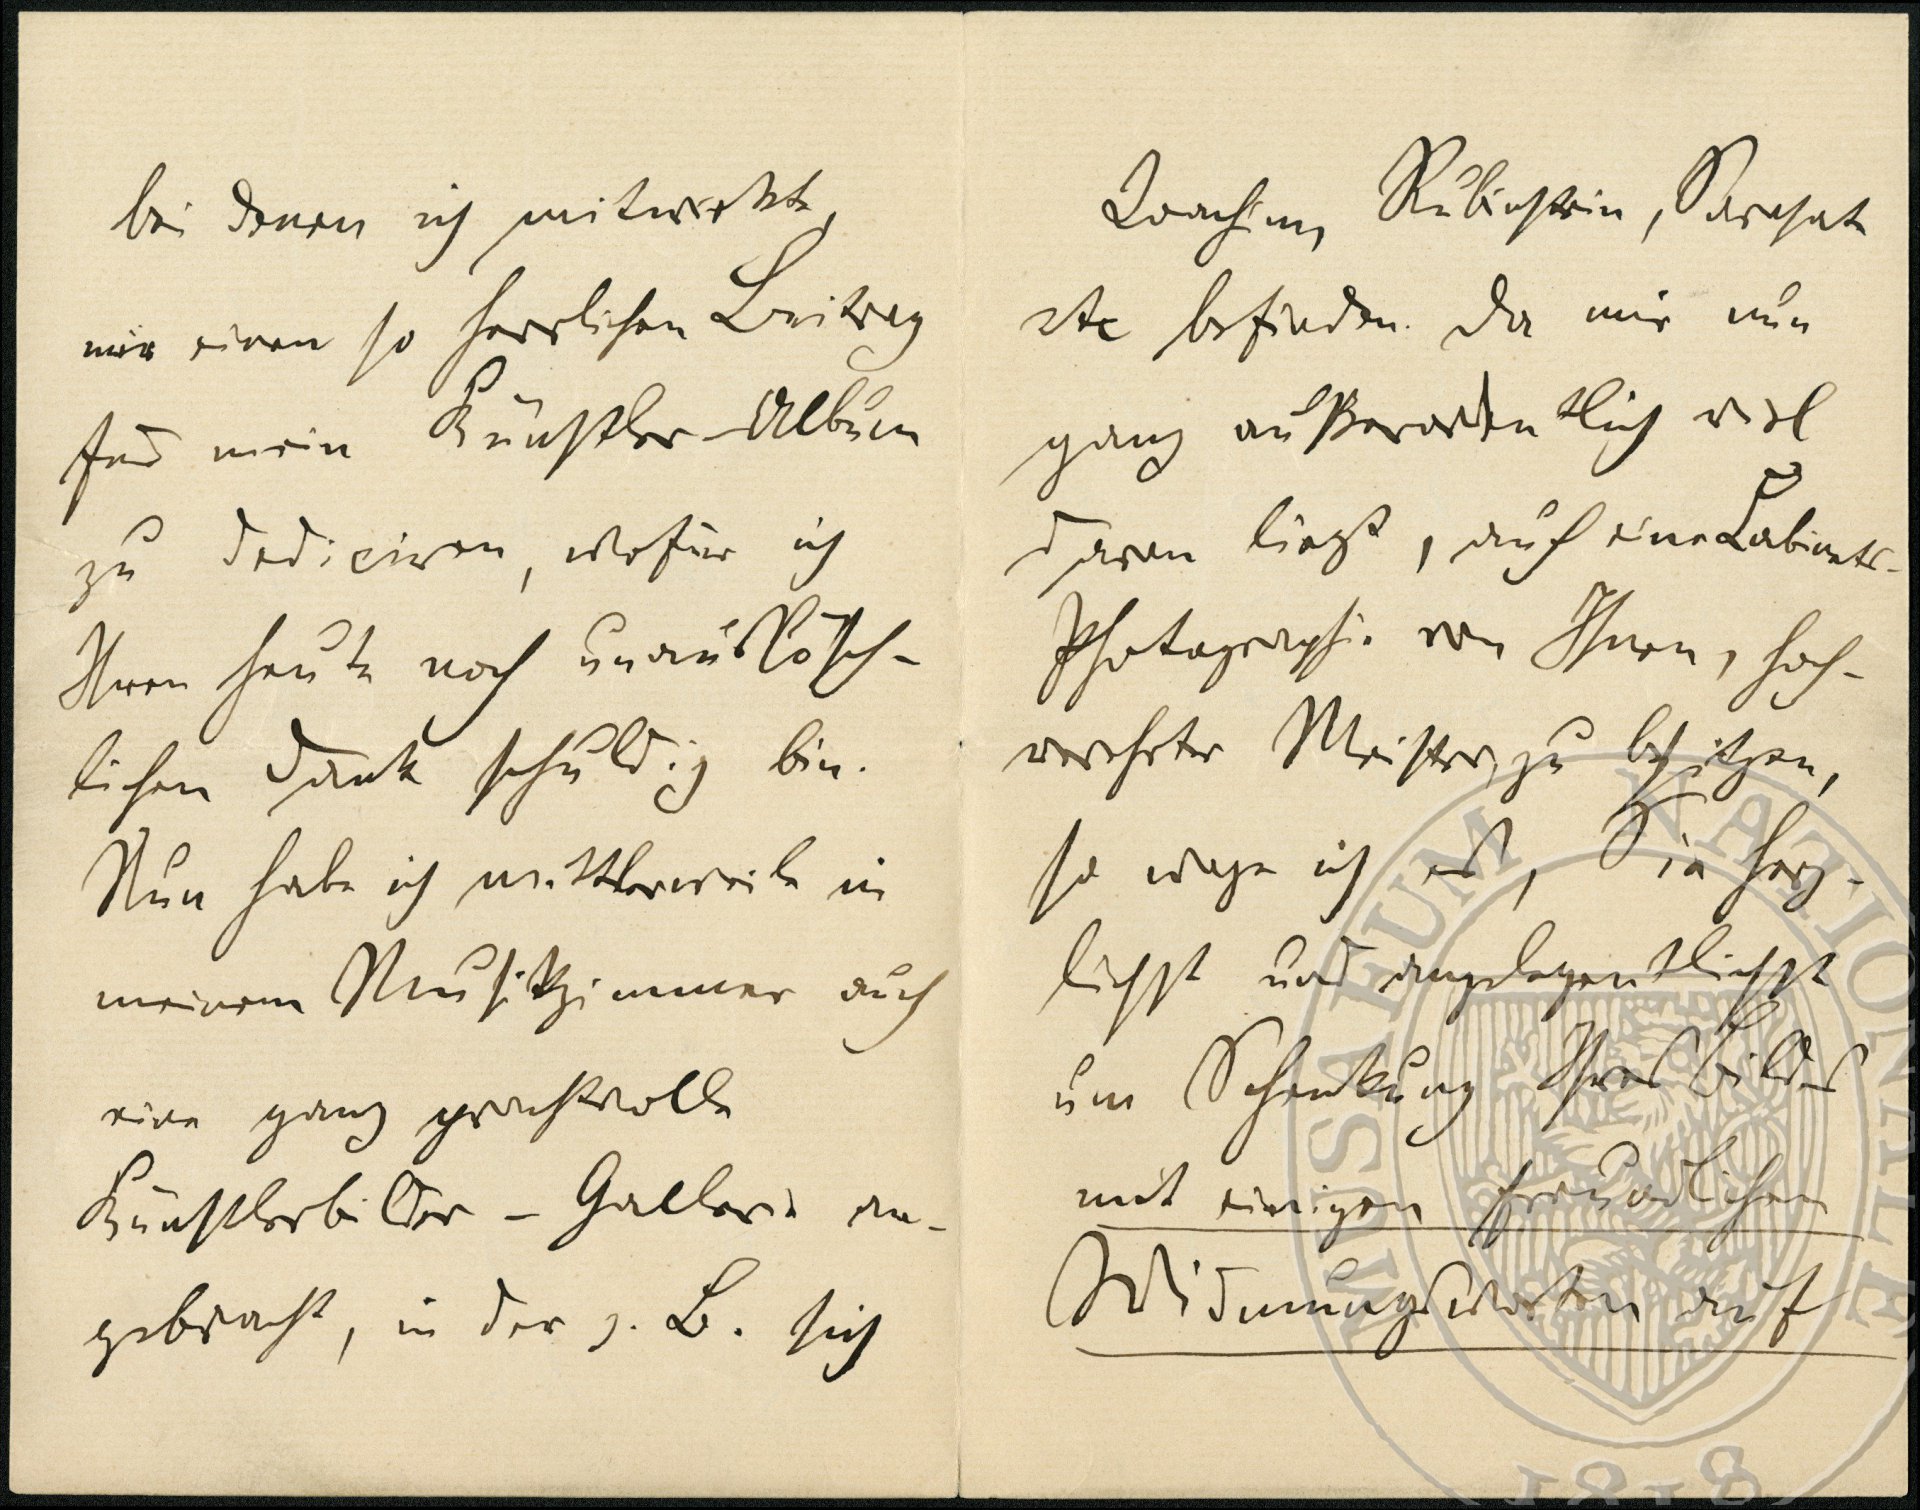 bei denen ich mitwirkte,
mir einen so herrlichen Beitrag
für mein Künstler-Album
zu dediciren, wofür ich
Ihnen heute noch unauslösch-
lichen Dank schuldig bin.
Nun habe ich mittlerweile in
meinem Musikzimmer auch
eine ganz prachtvolle
Künstlerbilder-Gallerie an-
gebracht, in der z. B. sich
Joachim, Rubinstein, Sarasate
etc befinden. Da mir nun
ganz außerordentlich viel
daran liegt, auch eine Cabinets-
Photographie von Ihnen, hoch-
verehrter Meister, zu besitzen,
so wage ich es, Sie herz-
lichst und angelegentlichst
um Schenkung Ihres Bildes
mit einigen freundlichen
Widmungsworten auf
MUSAEUM NATIONALE
1818